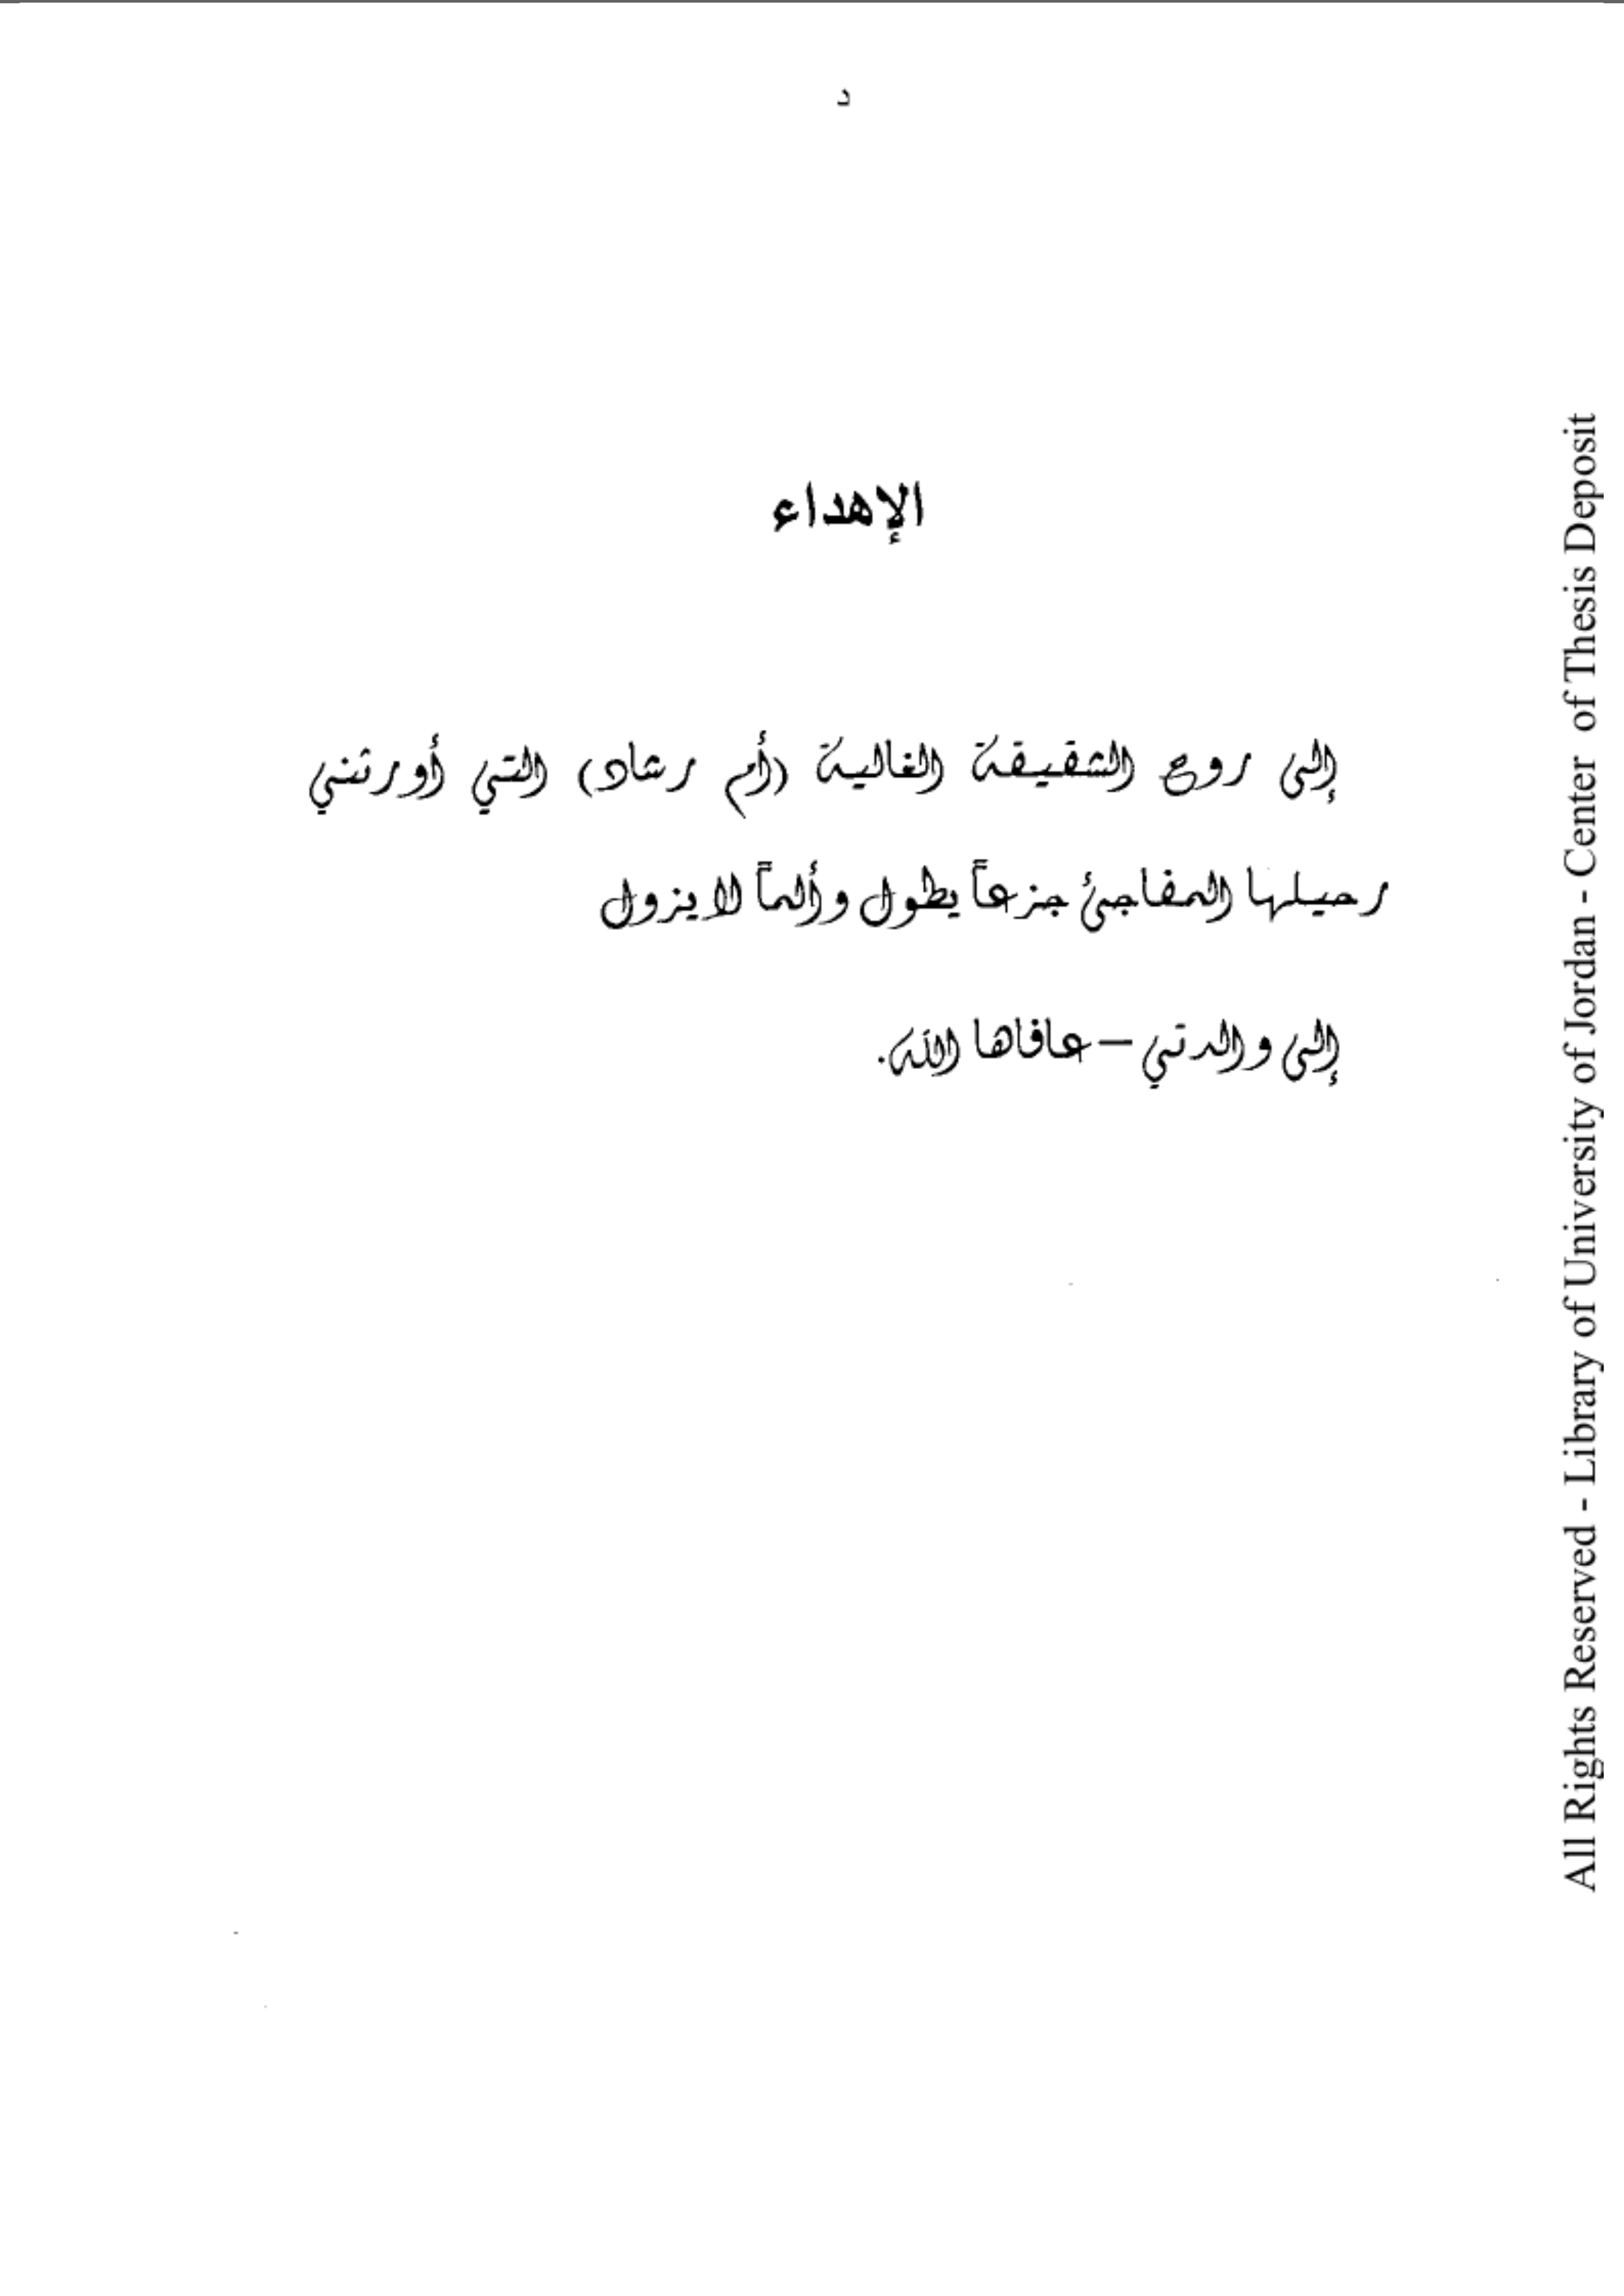 د
الإهداء
إلى روح الشقيقة الغالية (أم رشاد) التي أورثني
رحيلها المفاجئ جزعاً يطول وألماً لا يزول
إلى والدتي – عافاها الله.
All Rights Reserved - Library of University of Jordan - Center of Thesis Deposit